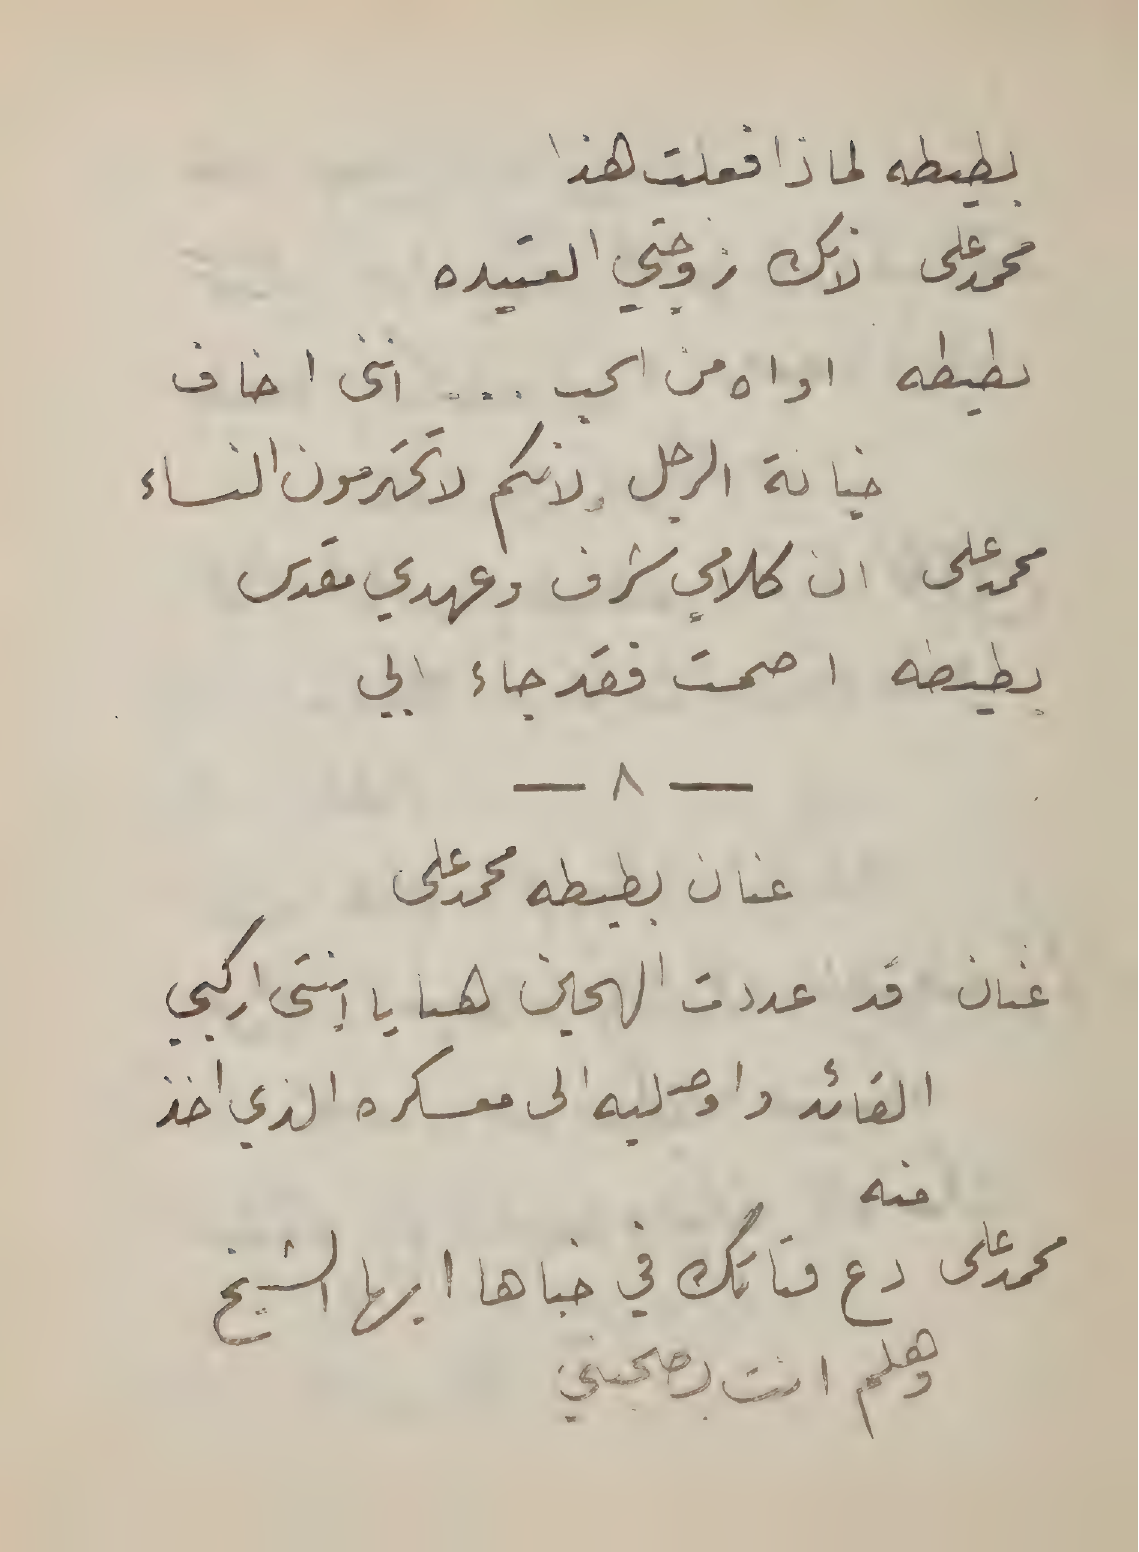 بطيطه لماذا فعلت هذا
محمد على لانك زوجتي العتيده
بطيطه اواه من الحب ... اننى اخاف
خيانة الرجل لانكم لا تحترمون النساء
محمد على ان كلامي شرف وعهدي مقدس
بطيطه اصمت فقد جاء ابي
— ٨ —
عنان بطيطه محمد على
عنان قد اعددت الهجين هنا يا ابنتى اركبي
القائد واوصليه الى معسكره الذي اخذ
منه
محمد على دع فتاتك في خباها ايها الشيخ
وهلم انت بصحبتي